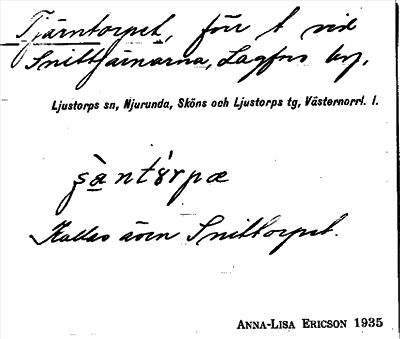 Tjärntorpet, förr t vid
Snittjärnarna, Lagfors by.
Ljustorps sn, Njurunda, Sköns och Ljustorps tg, Västernorrl. l.
Kallas även Snittorpet.
ANNA-LISA ERICSON 1935